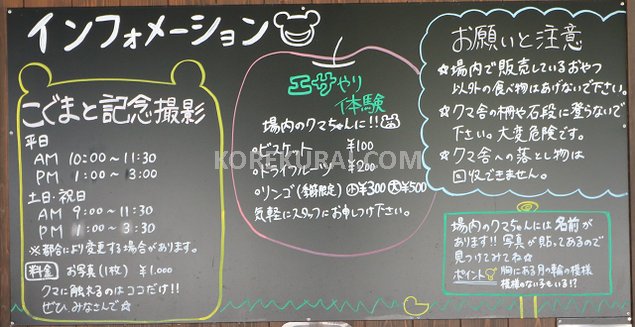 インフォメーション
こぐまと記念撮影
平日
AM 10:00～11:30
PM 1:00～3:00
土日・祝日
AM 9:00～11:30
PM 1:00～3:30
※都合により変更する場合があります。
料金 お写真(1枚) ¥1,000
クマに触れるのはココだけ!!
ぜひ、みなさんで☆
エサやり
体験
場内のクマちゃんに!!
○ビスケット ¥100
○ドライフルーツ ¥200
○リンゴ ¥300 大¥500
気軽にスタッフにお申しつけ下さい。
お願いと注意
☆場内で販売しているおやつ
以外の食べ物はあげないで下さい。
☆クマ舎の柵や石段に登らないで
下さい。大変危険です。
☆クマ舎への落とし物は
回収できません。
場内のクマちゃんには名前が
あります!! 写真が貼ってあるので
見つけてみてね☆
ポイント 胸にある月の輪の模様
模様のない子もいる!?
KOREKURAI.COM